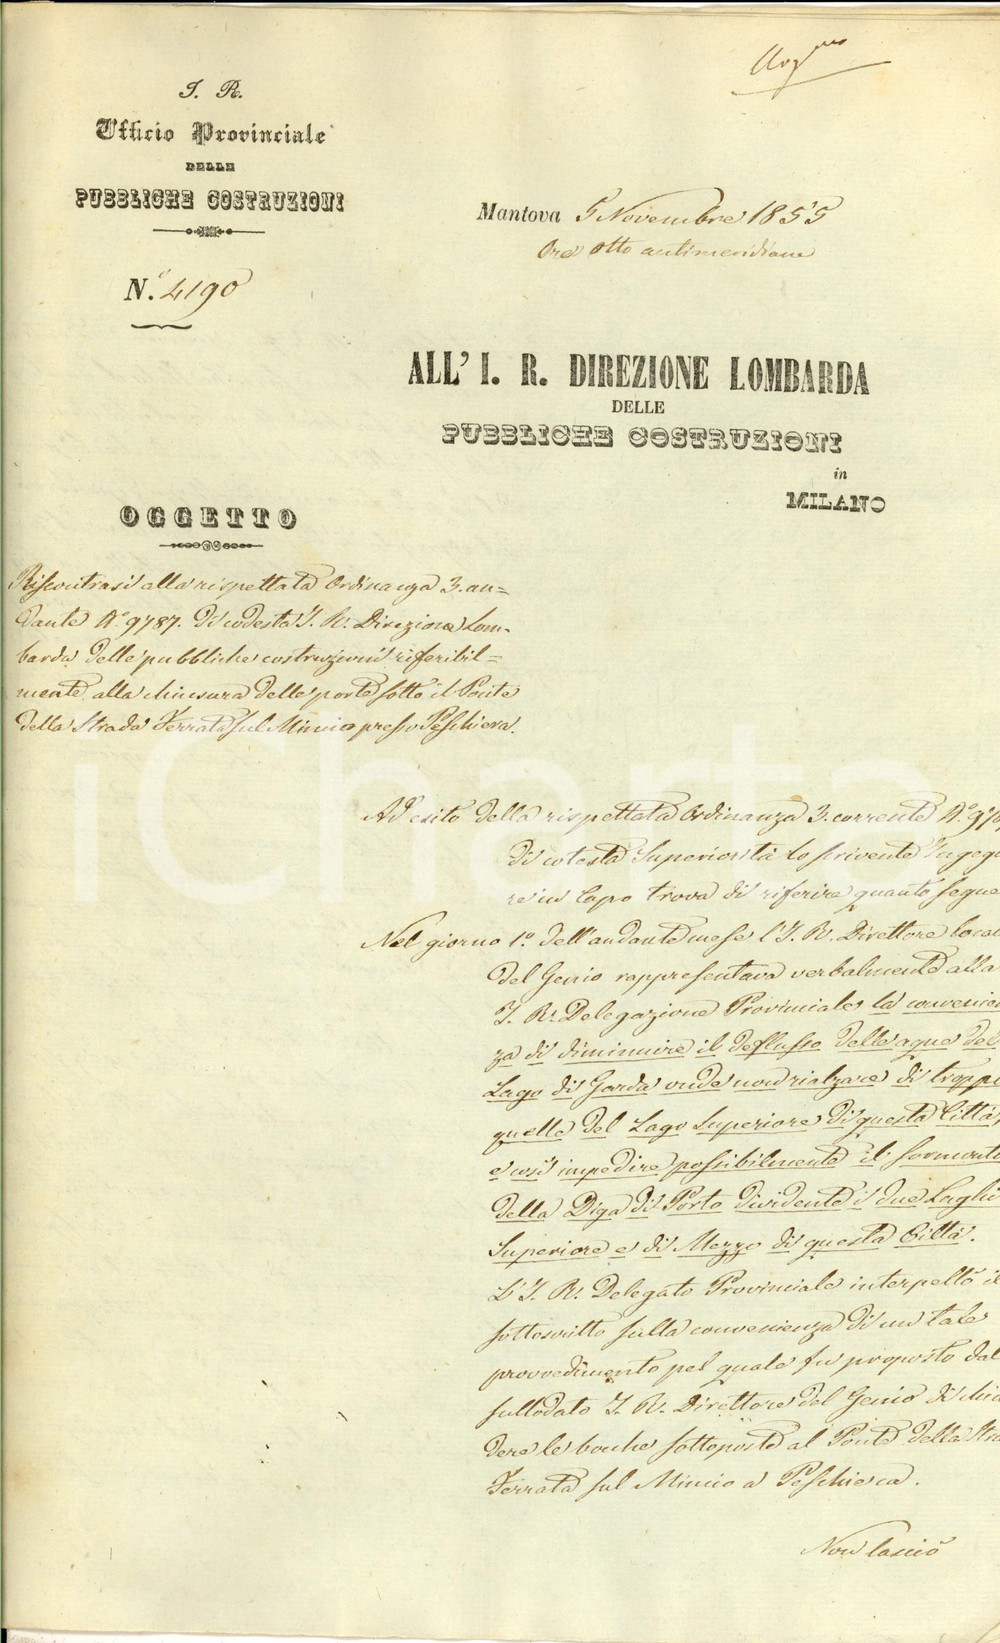 Urg.mo
I. R.
Ufficio Provinciale
DELLE
PUBBLICHE COSTRUZIONI
Mantova 5 Novembre 1855
Ore otto antimeridiane
N.° 4190
ALL' I. R. DIREZIONE LOMBARDA
DELLE
PUBBLICHE COSTRUZIONI
in
MILANO
OGGETTO
Riscontrasi alla rispettata Ordinanza 3. an=
dante N.° 9787. di codesta I. R. Direzione Lom-
barda delle pubbliche costruzioni riferibil=
mente alla chiusura delle porte sotto il Ponte
della Strada Ferrata sul Mincio presso Peschiera.
iCharta
Ad esito della rispettata Ordinanza 3. corrente N.° 978
di cotesta Superiorità lo scrivente Ingegn
re in Capo trova di riferire quanto segue
Nel giorno 1.° dell'andante mese l'I. R. Direttore local
del Genio rappresentava verbalmente alla
I. R. Delegazione Provinciale la convenien
za di diminuire il deflusso delle aque del
Lago di Garda onde non rialzare di troppo
quelle del Lago Superiore di questa Città,
e così impedire possibilmente il sormonto
della Diga di Porto dividente i due Laghi
Superiore e di Mezzo di questa Città.
L'I. R. Delegato Provinciale interpellò il
sottoscritto sulla convenienza di un tale
provvedimento pel quale fu proposto dal
sullodato I. R. Direttore del Genio di chiu
dere le bocche sottoposte al Ponte della Stra
Ferrata sul Mincio a Peschiera.
Non lasciò